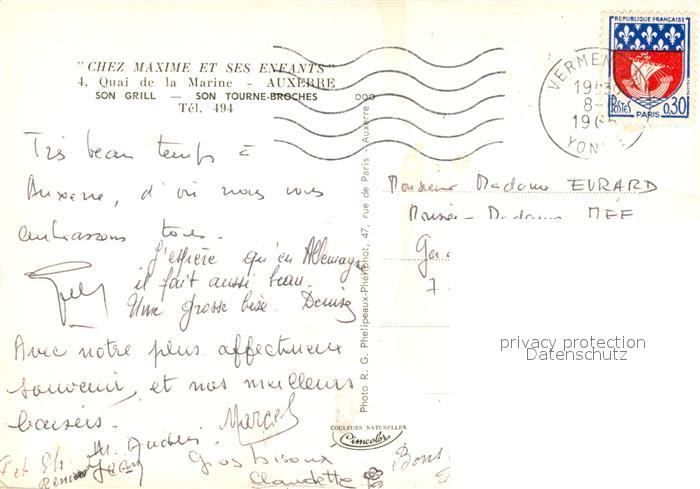 "CHEZ MAXIME ET SES ENFANTS"
4, Quai de la Marine - AUXERRE
SON GRILL — SON TOURNE-BROCHES
Tél. 494
REPUBLIQUE FRANÇAISE
POSTES 0,30
PARIS
VERMEN
19
8-
196
YONNE
Très beau temps à
Auxerre, d'où nous vous
embrassons tous.
J'espère qu'en Allemagne
il fait aussi beau.
Une grosse bise. Denise
Avec notre plus affectueux
souvenir, et nos meilleurs
baisers. Marcel
Gros bisoux
Claudette
Bons
Photo R. G. Phelipeaux-Phéniphot, 47, rue de Paris - Auxerre
COULEURS NATURELLES
Cimcolor
Monsieur Madame EVRARD
Monsieur Madame MÉE
privacy protection
Datenschutz